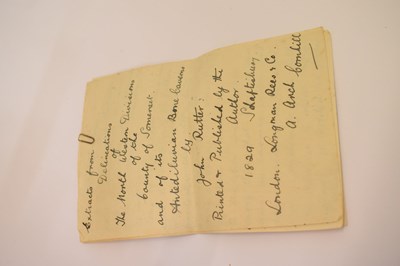 Extracts from
Delineations
of
The North Western Divisions
of the
County of Somerset
and of its
Antediluvian Bone Caverns
by
John Rutter:
Printed & Published by the
Author.
1829 Shaftesbury
London: Longman Rees & Co.
A. Arch Cornhill